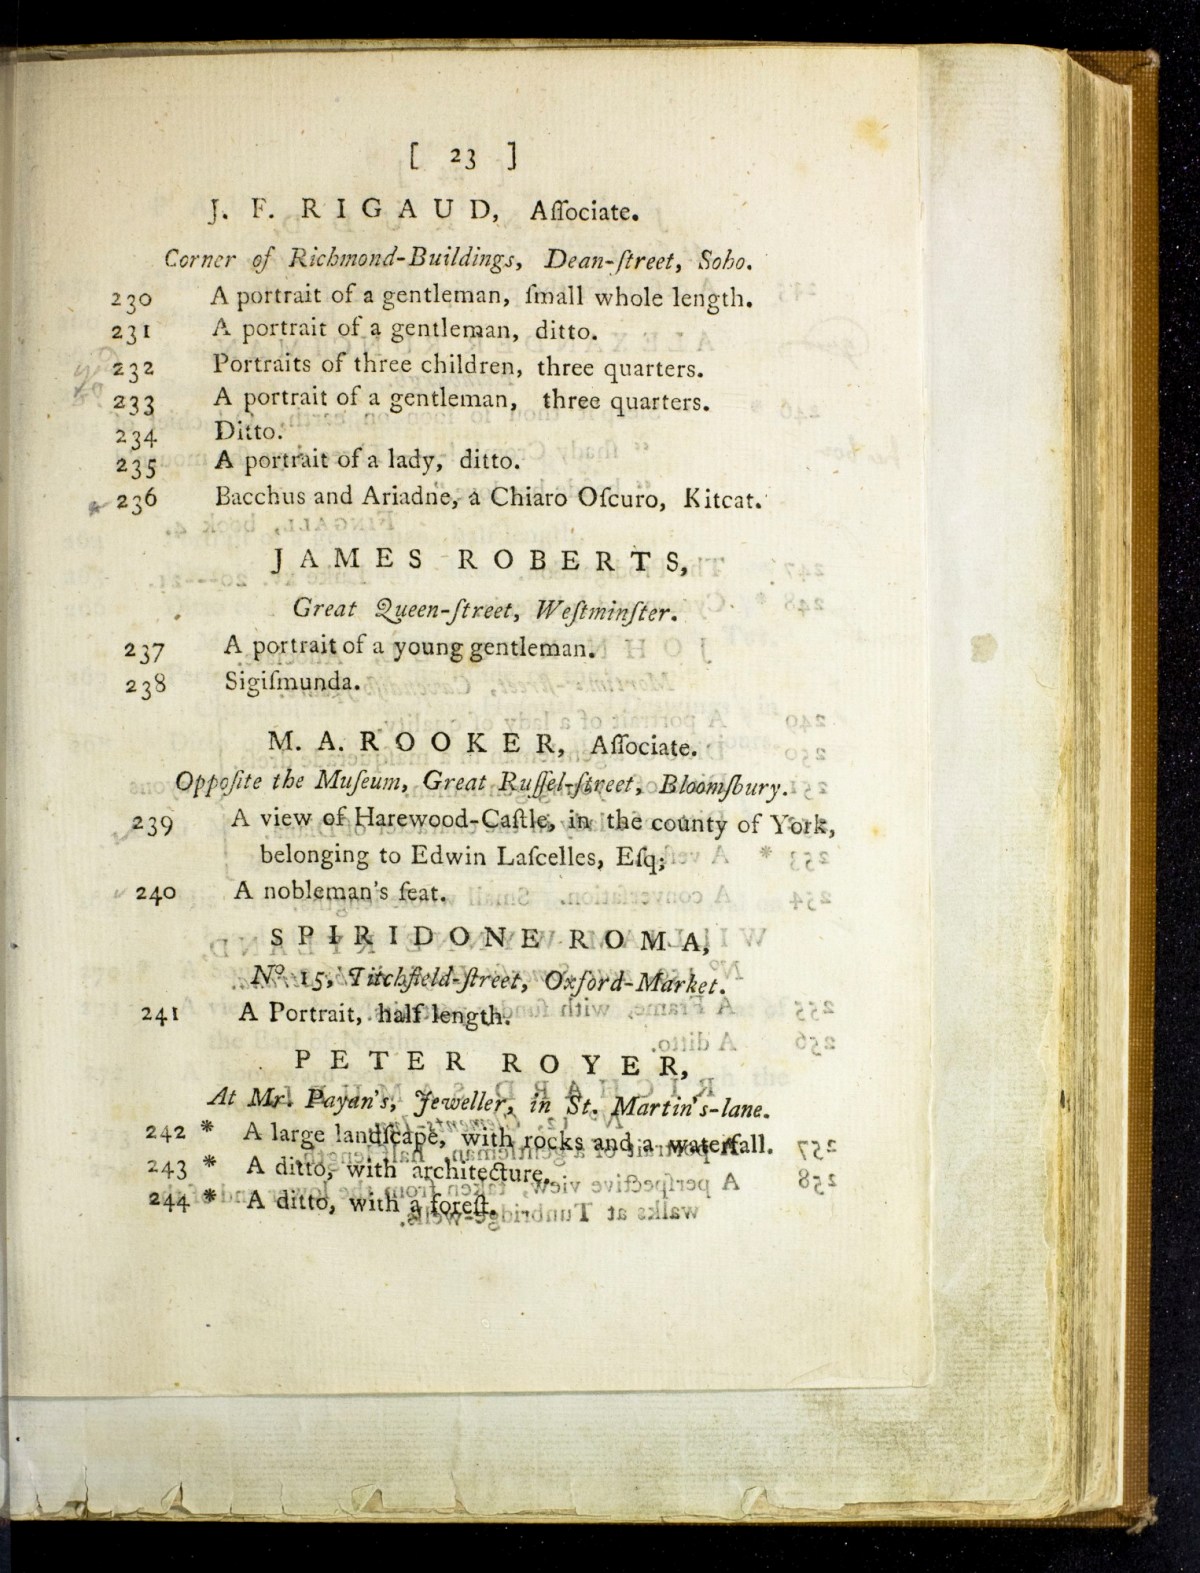 [ 23 ]
J. F. RIGAUD, Aſſociate.
Corner of Richmond-Buildings, Dean-ſtreet, Soho.
230 A portrait of a gentleman, ſmall whole length.
231 A portrait of a gentleman, ditto.
232 Portraits of three children, three quarters.
233 A portrait of a gentleman, three quarters.
234 Ditto.
235 A portrait of a lady, ditto.
236 Bacchus and Ariadne, a Chiaro Oſcuro, Kitcat.
JAMES ROBERTS,
Great Queen-ſtreet, Weſtminſter.
237 A portrait of a young gentleman.
238 Sigiſmunda.
M. A. ROOKER, Aſſociate.
Oppoſite the Muſeum, Great Ruſſel-ſtreet, Bloomſbury.
239 A view of Harewood-Caſtle, in the county of York,
belonging to Edwin Laſcelles, Eſq;
240 A nobleman's ſeat.
SPIRIDONE ROMA,
No. 15, Titchfield-ſtreet, Oxford-Market.
241 A Portrait, half length.
PETER ROYER,
At Mr. Payan's, Jeweller, in St. Martin's-lane.
242 * A large landſcape, with rocks and a waterfall.
243 * A ditto, with architecture.
244 * A ditto, with a foreſt.